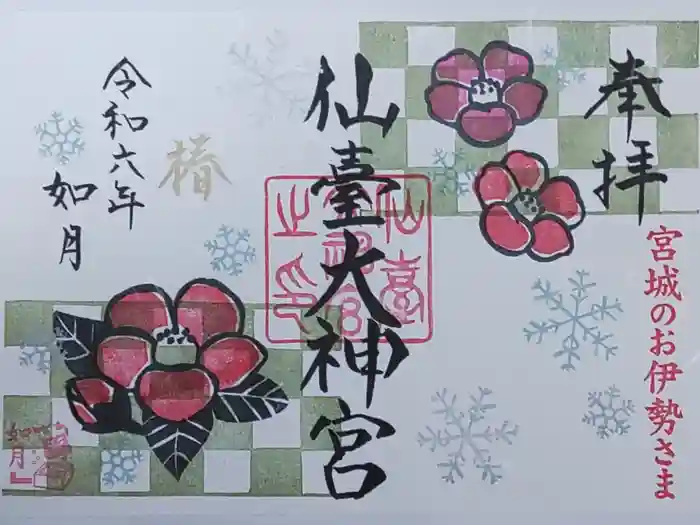 奉拝
宮城のお伊勢さま
仙臺大神宮
仙臺
之印
椿
令和六年
如月
如月